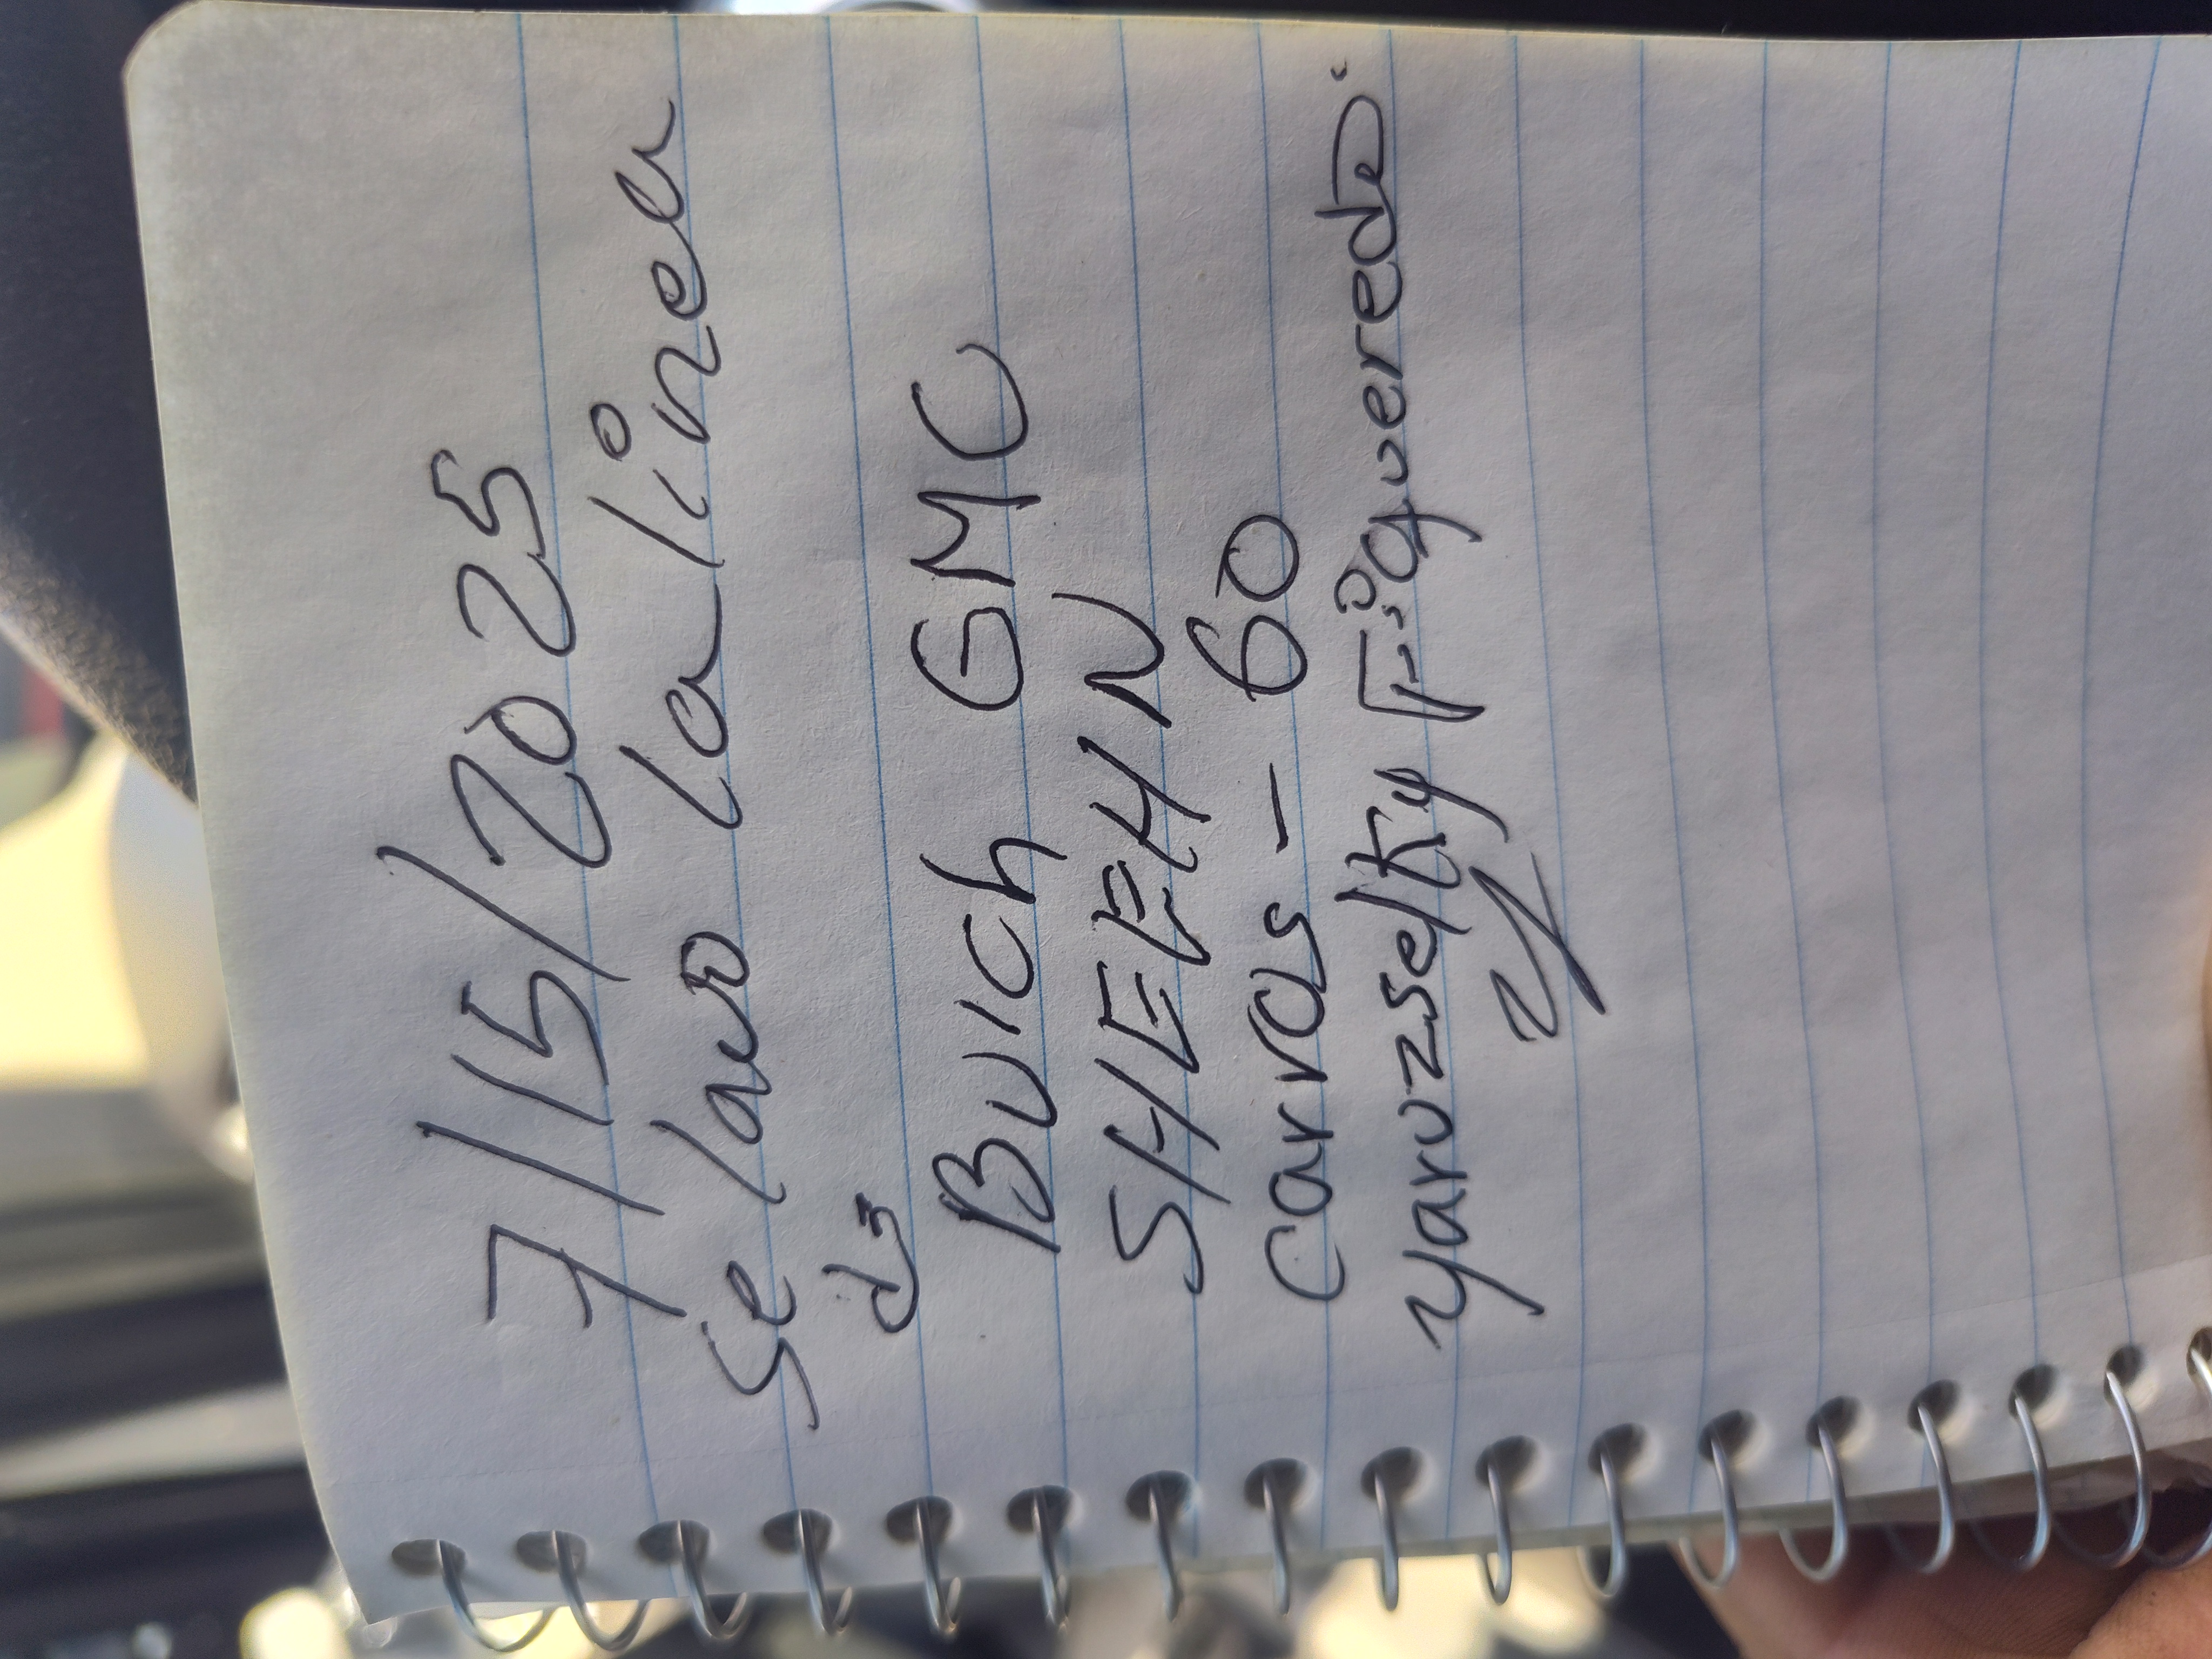 7/15/2025
Se lavo la linea
de
Buich GMC
SHEEHN
carros - 60
yaruzselky Figuereda.
y